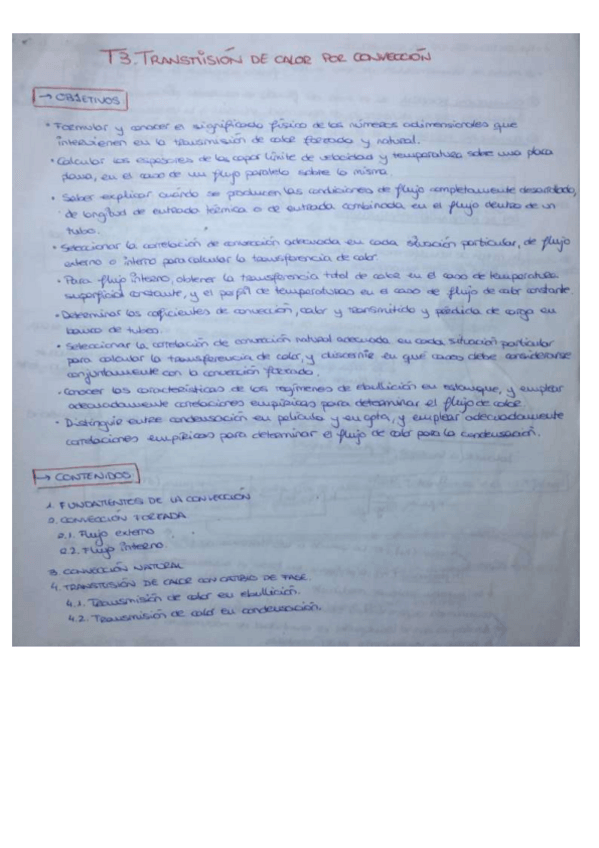 T3. TRANSMISIÓN DE CALOR POR CONVECCIÓN
→ OBJETIVOS:
• Formular y conocer el significado físico de los números adimensionales que
intervienen en la transmisión de calor forzada y natural.
• Calcular los espesores de las capas límite de velocidad y temperatura sobre una placa
plana, en el caso de un flujo paralelo sobre la misma.
• Saber explicar cuándo se producen las condiciones de flujo completamente desarrollado,
de longitud de entrada térmica o de entrada combinada en el flujo dentro de un
tubo.
• Seleccionar la correlación de convección adecuada en cada situación particular, de flujo
externo o interno para calcular la transferencia de calor
• Para flujo interno, obtener la transferencia total de calor en el caso de temperatura
superficial constante, y el perfil de temperaturas en el caso de flujo de calor constante.
• Determinar los coeficientes de convección, calor y transmitido y pérdida de carga en
banco de tubos.
• Seleccionar la correlación de convección natural adecuada en cada situación particular
para calcular la transferencia de calor, y discernir en qué casos debe considerarse
conjuntamente con la convección forzada.
• Conocer las características de los regímenes de ebullición en estanque, y emplear
adecuadamente correlaciones empíricas para determinar el flujo de calor.
• Distinguir entre condensación en película y en gota, y emplear adecuadamente
correlaciones empíricas para determinar el flujo de calor para la condensación.
→ CONTENIDOS:
1. FUNDAMENTOS DE LA CONVECCIÓN
2. CONVECCIÓN FORZADA
2.1. Flujo externo
2.2. Flujo interno
3. CONVECCIÓN NATURAL
4. TRANSMISIÓN DE CALOR CON CAMBIO DE FASE.
4.1. Transmisión de calor en ebullición.
4.2. Transmisión de calor en condensación.